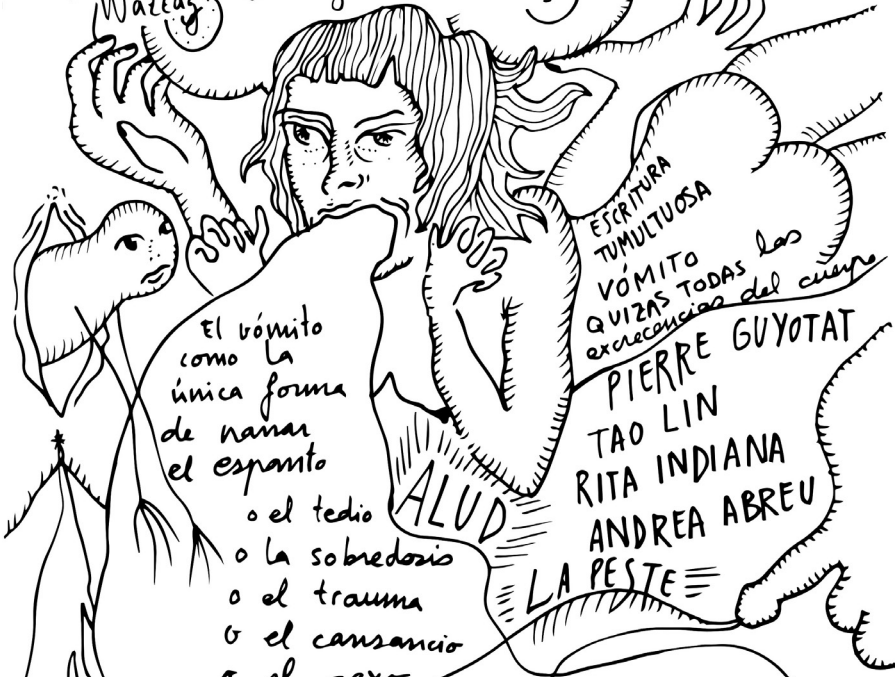 El vómito
como la
única forma
de narrar
el espanto
o el tedio
o la sobredosis
o el trauma
o el cansancio
ALUD
ESCRITURA
TUMULTUOSA
VÓMITO
QUIZAS TODAS las
excrecencias del cuerpo
PIERRE GUYOTAT
TAO LIN
RITA INDIANA
ANDREA ABREU
LA PESTE